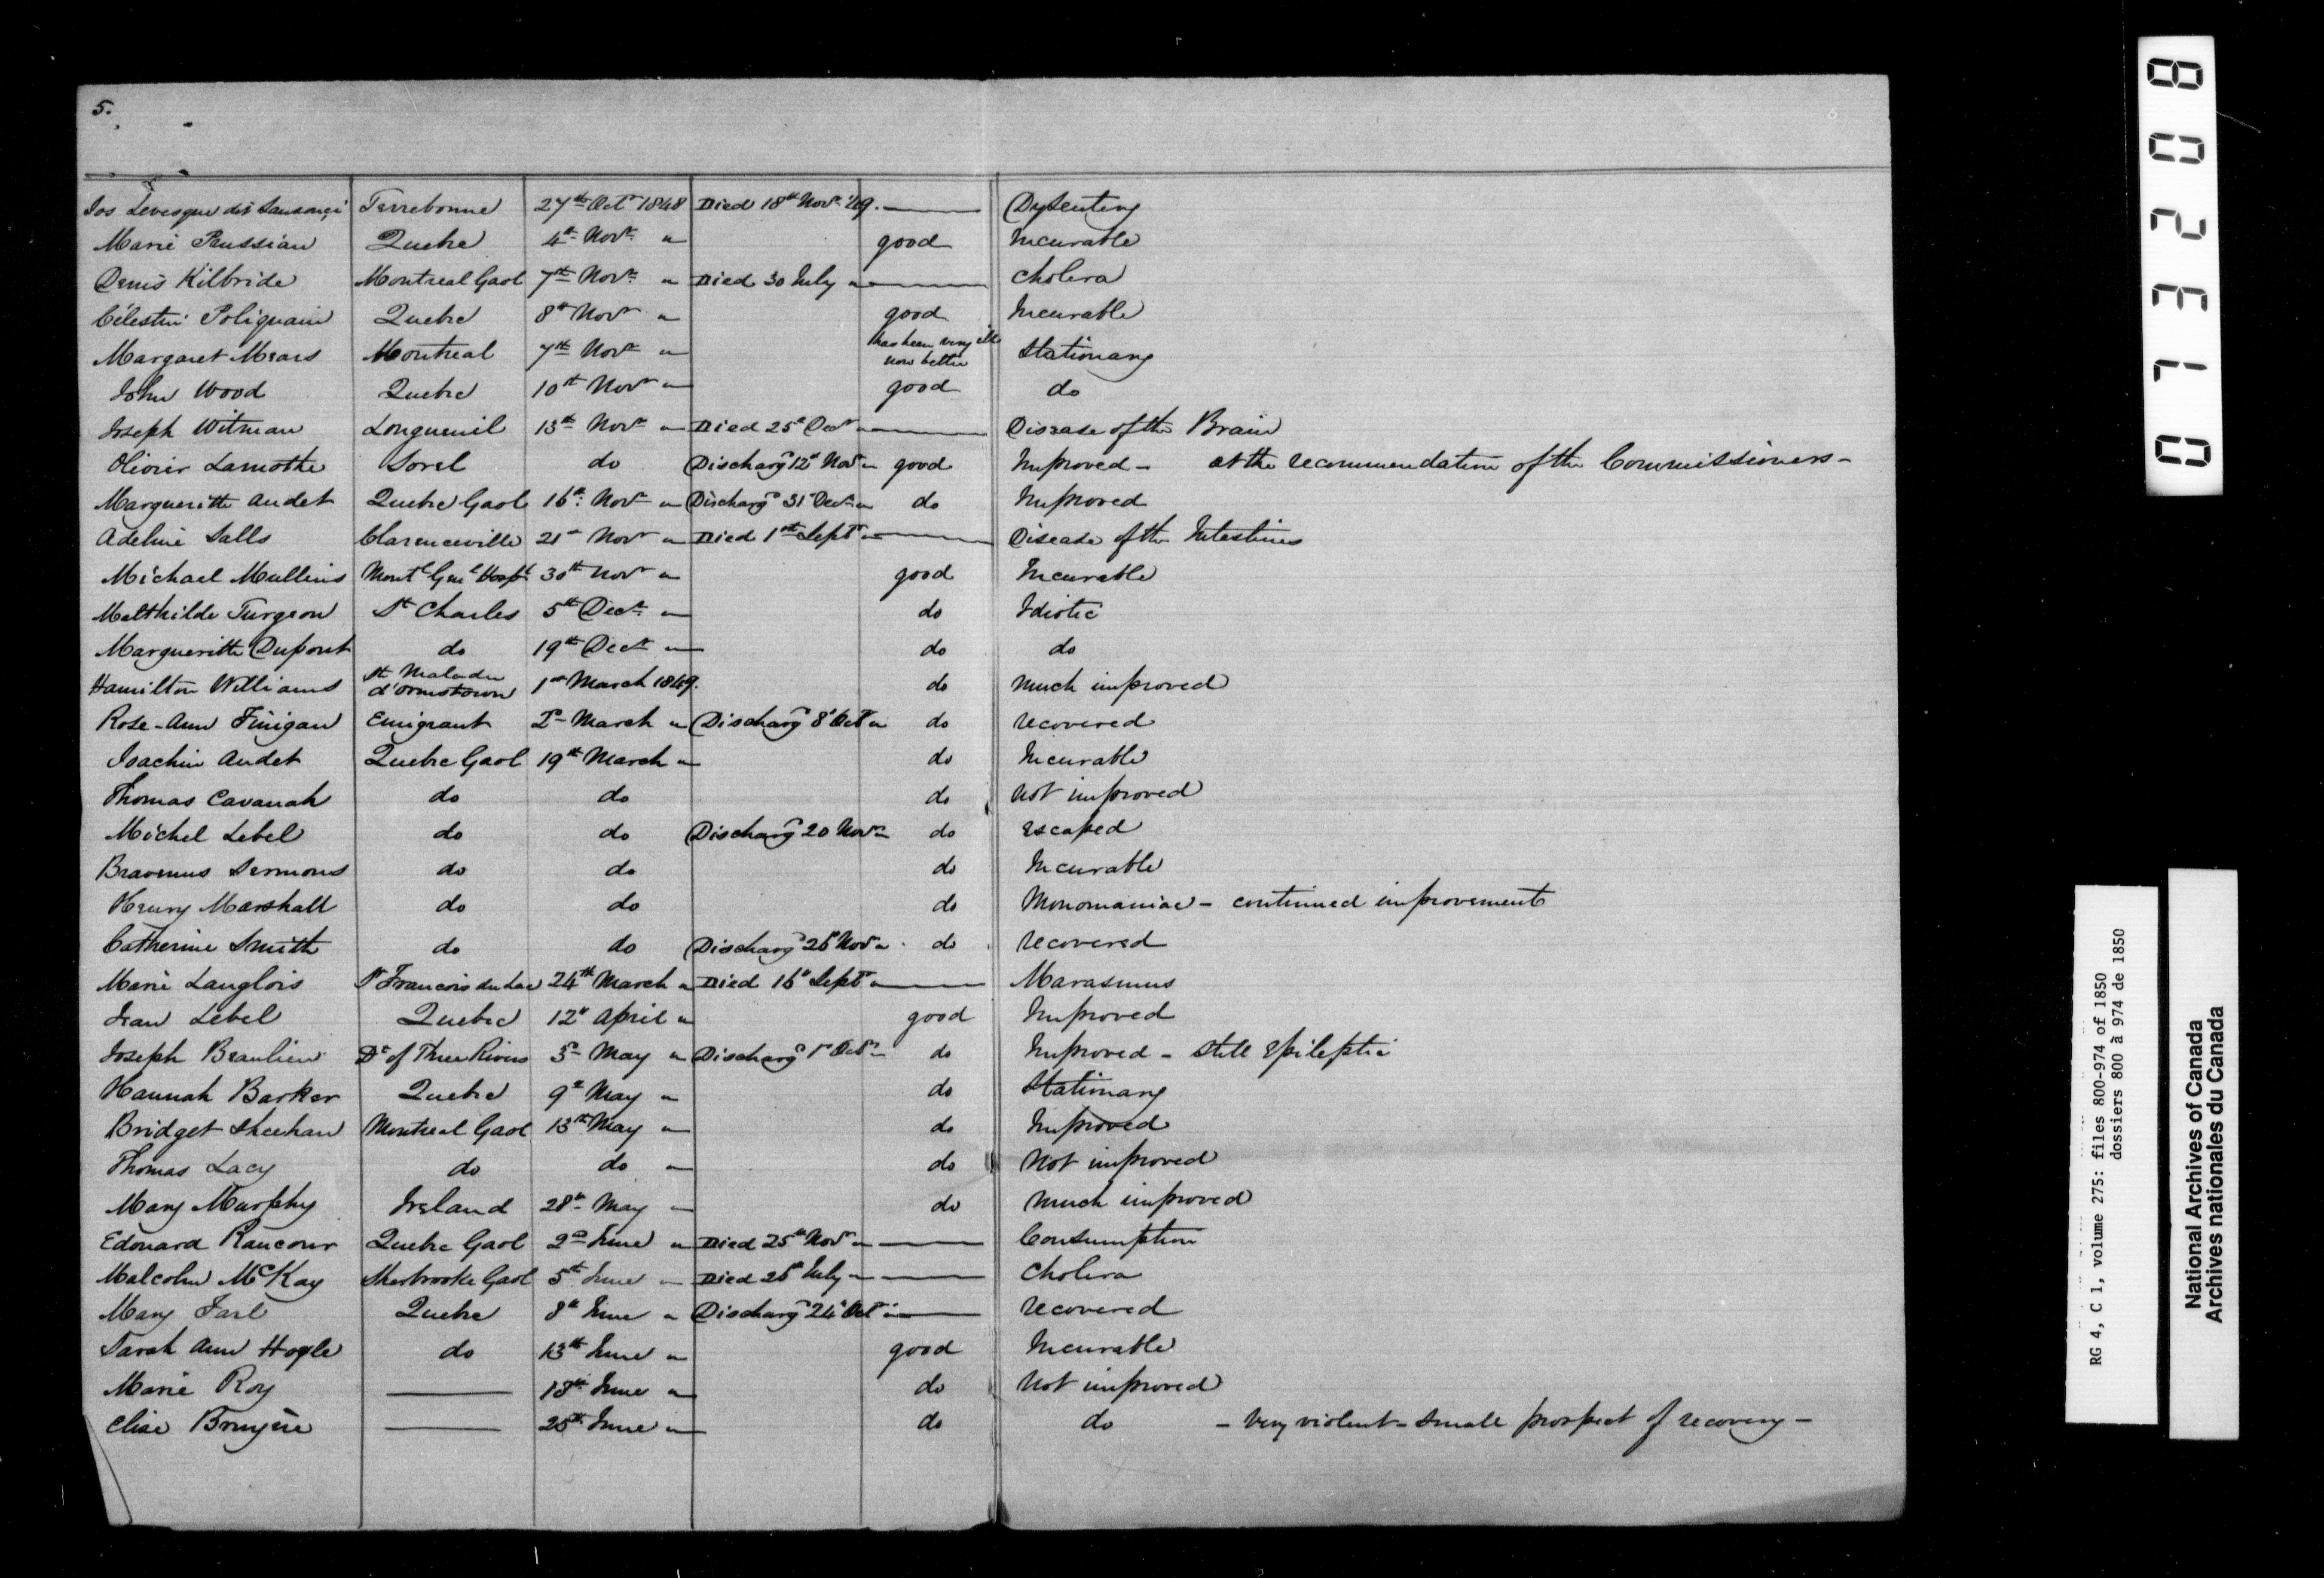 5.
Jos Levesque dit Sansouci Terrebonne 27th Octr 1848 Died 18th Novr '49. Dysentery
Marie Prussian Quebec 4th Novr " good Incurable
Denis Kilbride Montreal Gaol 7th Novr " Died 30 July " Cholera
Célestin Poliquain Quebec 8th Novr " good Incurable
Margaret Mears Montreal 7th Novr " has been very ill now better Stationary
John Wood Quebec 10th Novr " good do
Joseph Witman Longueuil 13th Novr " Died 25th Decr " Disease of the Brain
Olivier Lamothe Sorel do Dischargd 12th Novr " good Improved - at the recommendation of the Commissioners -
Margueritte Audet Quebec Gaol 16th Novr " Dischargd 31st Decr " do Improved
Adeline Salls Clarenceville 21st Novr " Died 1st Sept " Disease of the Intestines
Michael Mullins Montl Genl Hospl 30th Novr " good Incurable
Malthilde Turgeon St Charles 5th Decr " do Idiotic
Margueritte Dupont do 19th Decr " do do
Hamilton Williams St Malachi d'Ormstown 1st March 1849. do Much improved
Rose-Ann Finigan Emigrant 2d March " Dischargd 8th Oct " do recovered
Joachim Audet Quebec Gaol 19th March " do Incurable
Thomas Cavanah do do do not improved
Michel Lebel do do Dischargd 20 Novr " do escaped
do do do Incurable
Henry Marshall do do do Monomaniac - continued improvement
Catherine Smith do do Dischargd 26th Novr " do recovered
Marie Langlois St Francois du Lac 24th March " Died 16th Sept " Marasmus
Jean Lebel Quebec 12th April " good Improved
Joseph Beaulieu Dt of Three Rivers 3d May " Dischargd 1st Octr " do Improved - still Epileptic
Hannah Barker Quebec 9th May " do Stationary
Bridget Sheehan Montreal Gaol 13th May " do Improved
Thomas Lacy do do " do Not improved
Mary Murphy Ireland 28th May " do Much improved
Edouard Rancour Quebec Gaol 2d June " Died 25th Novr " Consumption
Malcolm McKay Sherbrooke Gaol 5th June " Died 26th July " Cholera
Mary Quebec 8th June " Dischargd 24th Oct " recovered
Sarah Ann Hogle do 13th June " good Incurable
Marie Roy 18th June " do Not improved
Elise Bruyère 25th June " do do - very violent - small prospect of recovery -
013208
RG 4, C 1, volume 275: files 800-974 of 1850
dossiers 800 à 974 de 1850
National Archives of Canada
Archives nationales du Canada